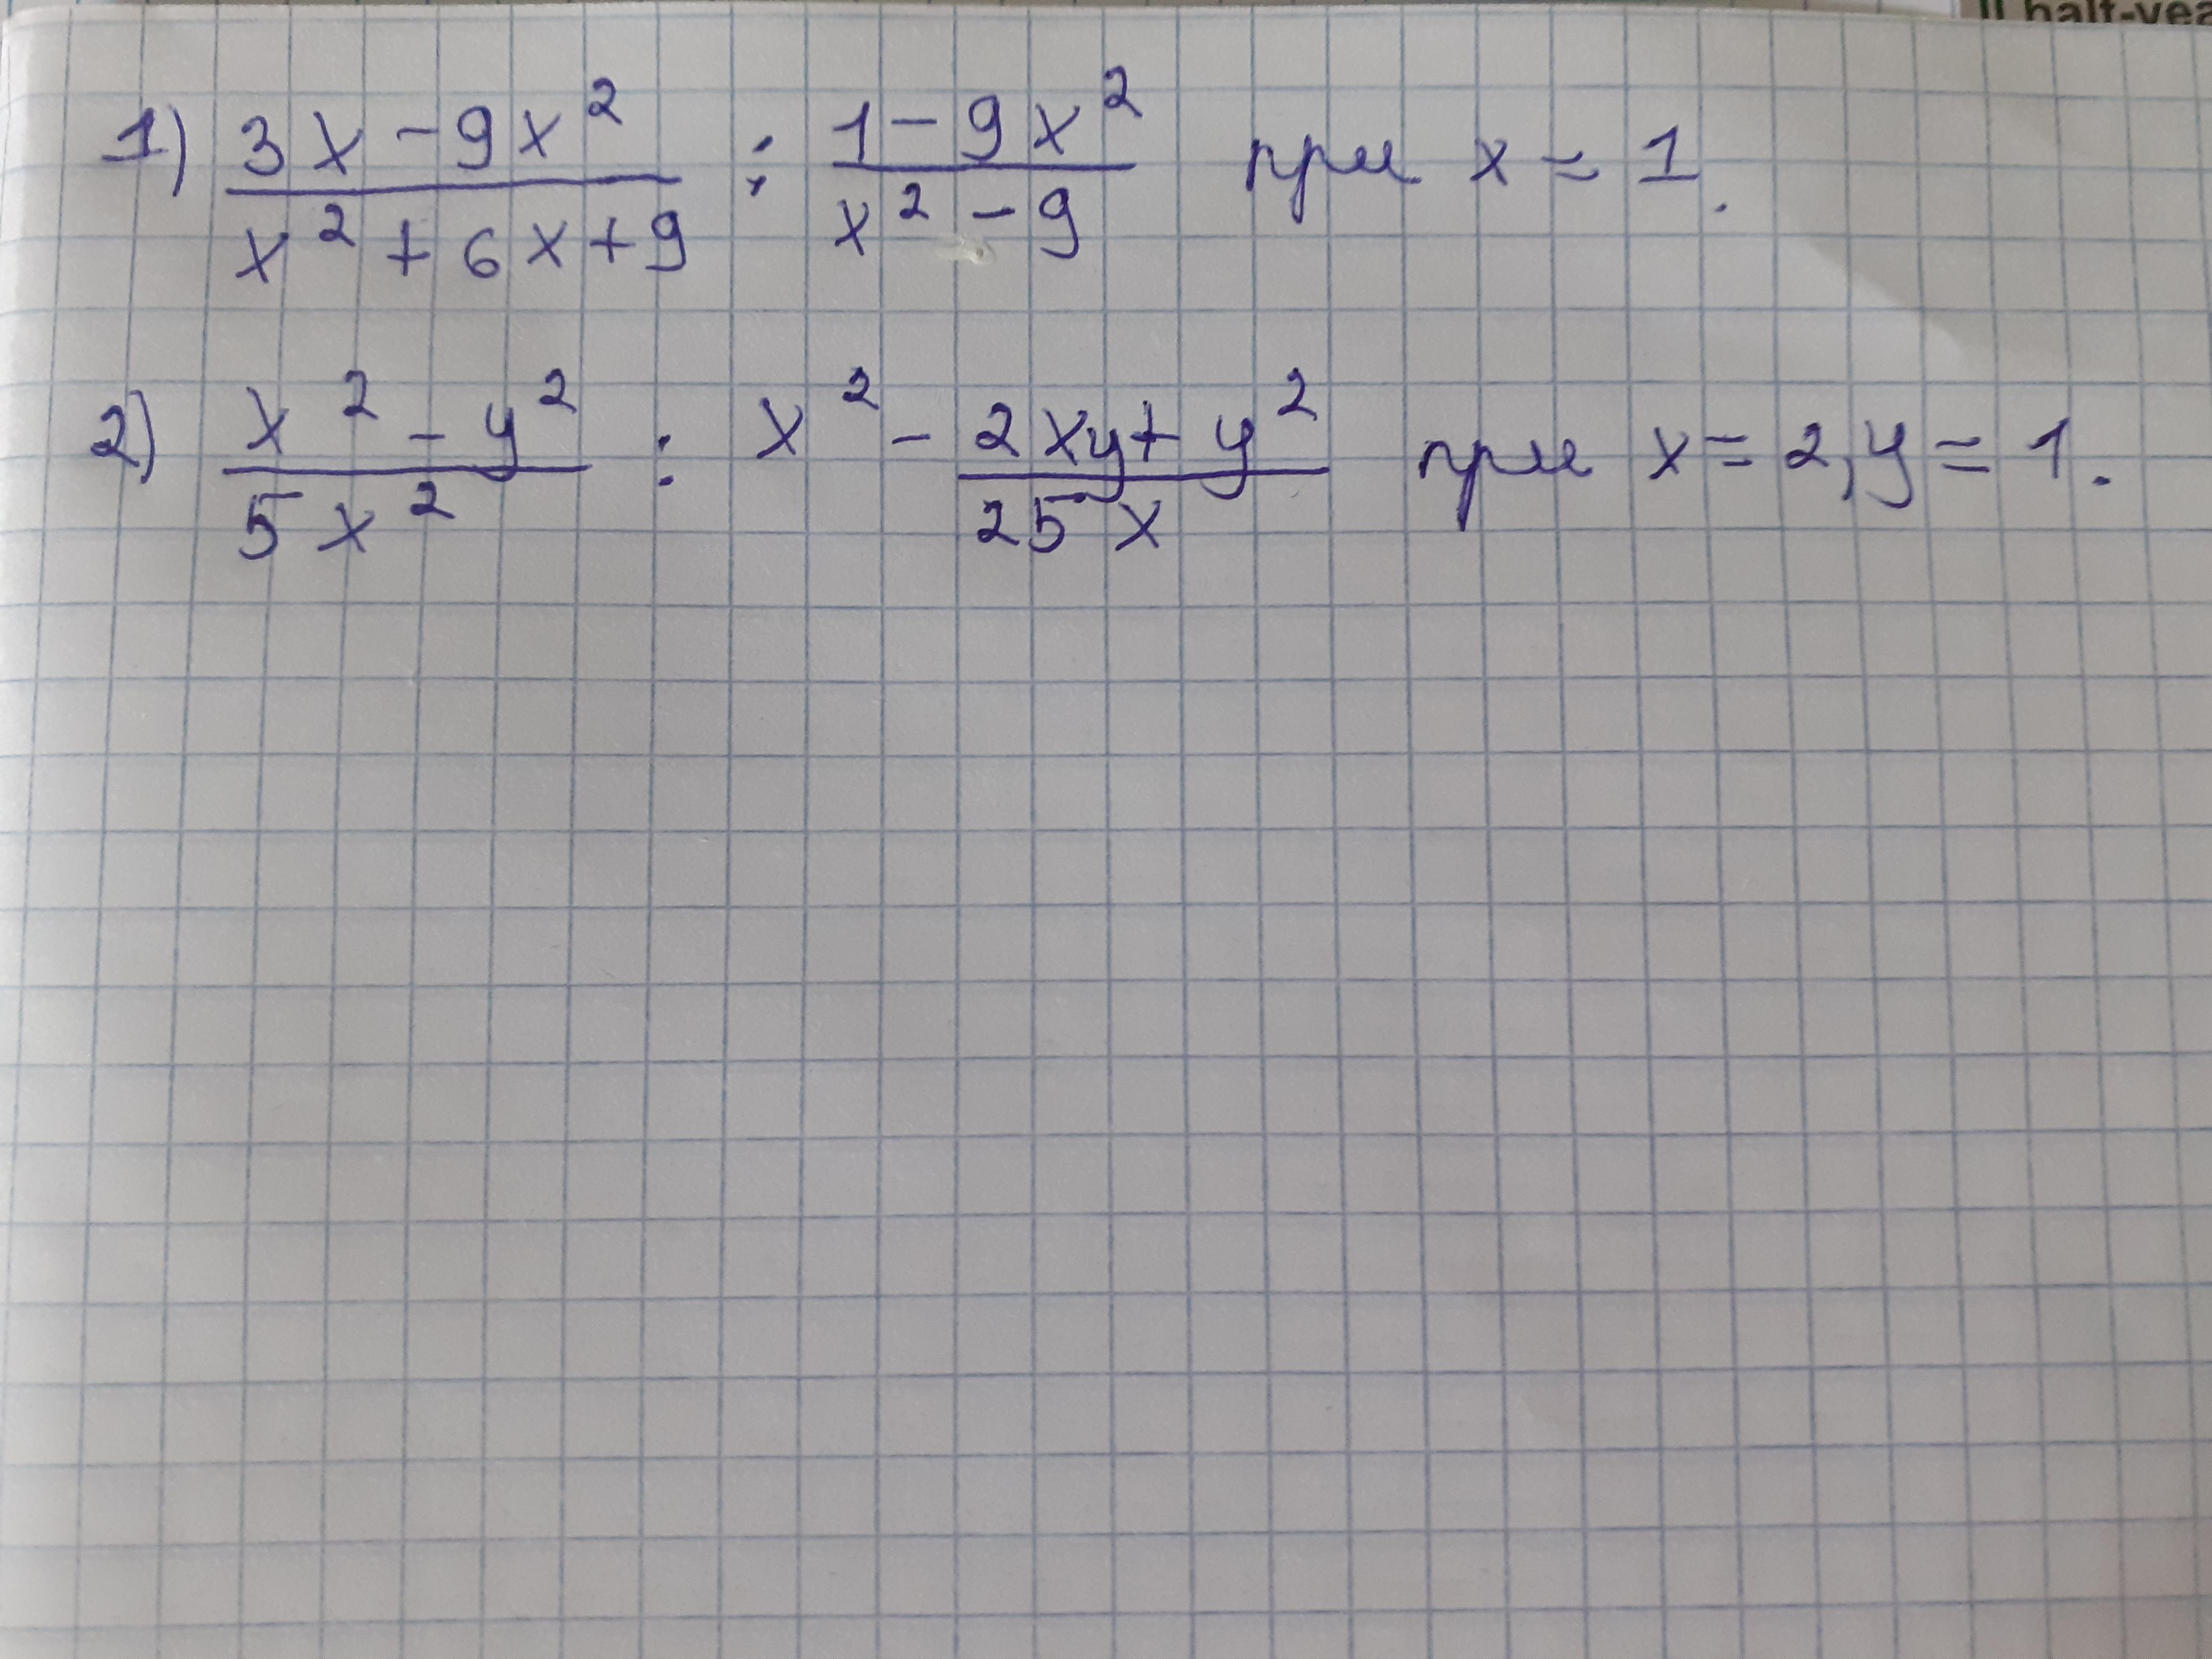 II half-yea
1) \frac{3x-9x^2}{x^2+6x+9} : \frac{1-9x^2}{x^2-9} при x=1.
2) \frac{x^2-y^2}{5x^2} : x^2-\frac{2xy+y^2}{25x} при x=2, y=1.